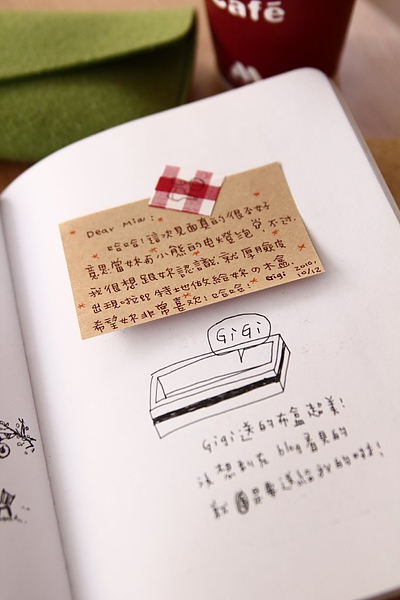 Café
Dear Mia:
哈哈!這次見面真的很不好
意思當妳有小熊的电燈泡ㄋㄟ,不过,
我很想跟妳認識,就厚臉皮
出現啦!特地做給妳の木盒,
希望妳非常喜欢!哈哈! Gigi
2010.
10/12
GiGi
Gigi送的木盒超美!
沒想到在blog看見的
就送給我的